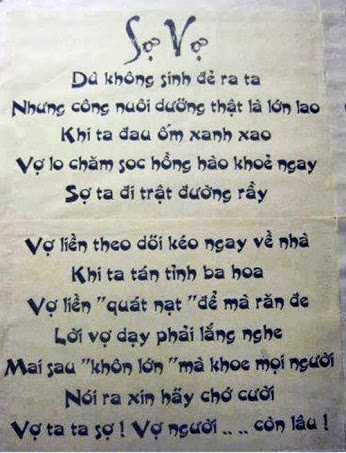 Sợ Vợ
Dù không sinh đẻ ra ta
Nhưng công nuôi dưỡng thật là lớn lao
Khi ta đau ốm xanh xao
Vợ lo chăm soc hồng hào khoẻ ngay
Sợ ta đi trật đường rầy
Vợ liền theo dõi kéo ngay về nhà
Khi ta tán tỉnh ba hoa
Vợ liền "quát nạt" để mà răn đe
Lời vợ dạy phải lắng nghe
Mai sau "khôn lớn" mà khoe mọi người
Nói ra xin hãy chớ cười
Vợ ta ta sợ ! Vợ người .. .. còn lâu !